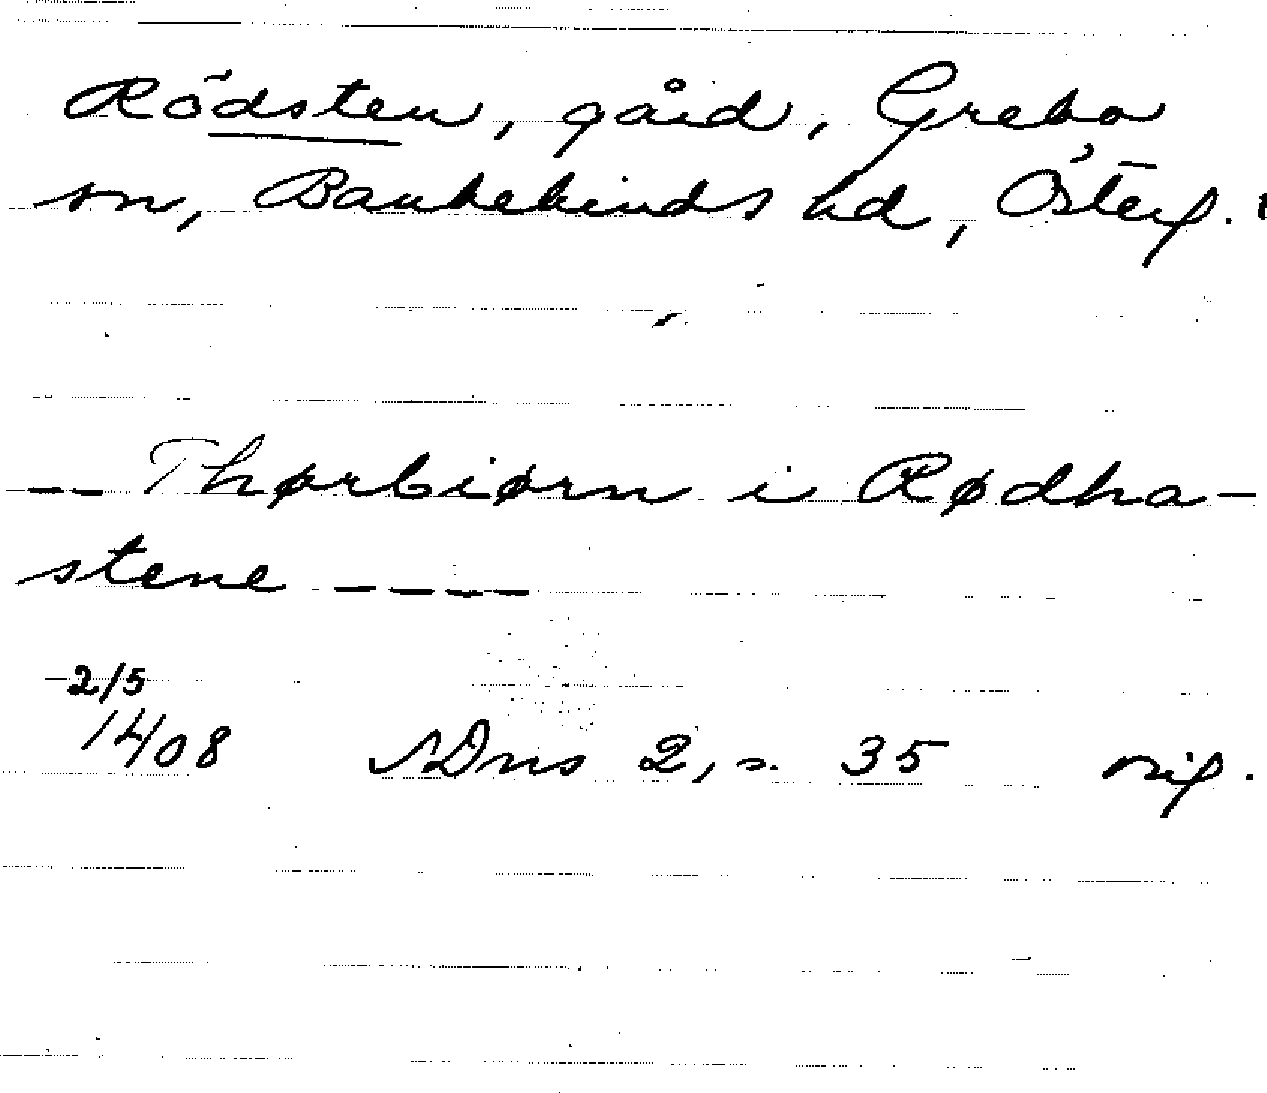 Rödsten, gård, Grebo
sn, Bankekinds hd, Österg.
— Thørbiørn i Rødha-
stene ————
2/5
1408 SDns 2, s. 35 orig.